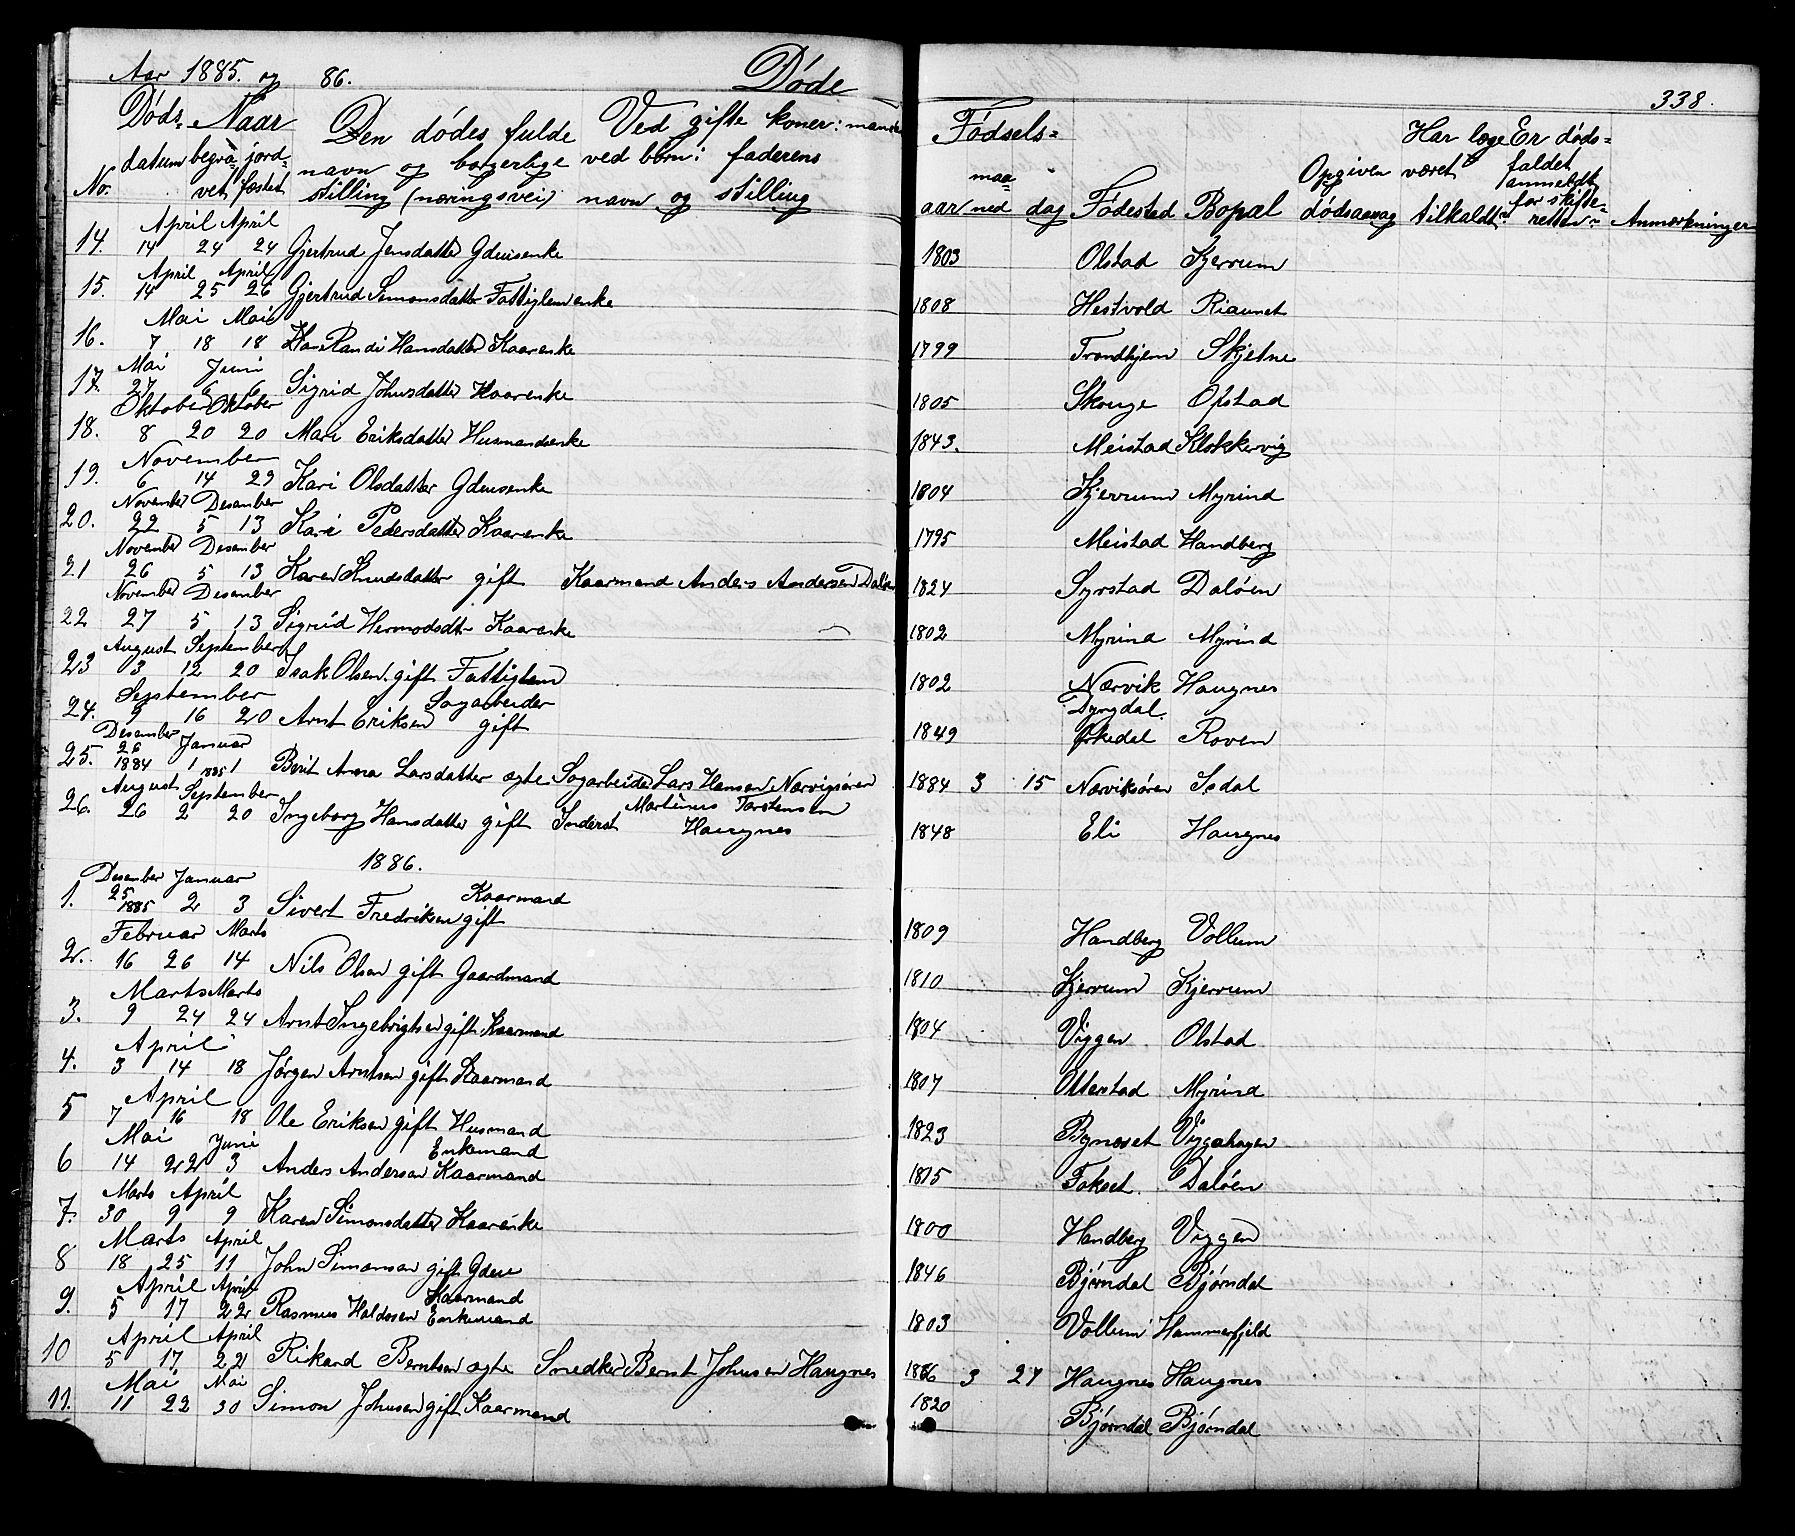 Aar 1885. og 86. Døde 338.
Døds- Naar Den dødes fulde Ved gifte koner: mands Fødsels- Har læge Er døds-
datum begra- jord- navn og borgerlige ved børn: faderens maa- Opgiven været faldet anmeldt
No. vet fæstet stilling (næringsvei) navn og stilling aar ned dag Fødested Bopæl dødsaarsag tilkaldt? for skifteretten? Anmærkninger
April April
14. 14 24 24 Gjertrud Jensdatter Gdmsenke 1803 Olstad Kjerrum
April April
15. 14 25 26 Gjertrud Simonsdatter Fattiglem enke 1808 Hestvold Riaunet
Mai Mai
16. 7 18 18 Randi Hansdatter Kaarenke 1799 Trondhjem Skjetne
Mai Juni
17. 27 6 6 Sigrid Johnsdatter Kaarenke 1805 Skouge Opstad
Oktober Oktober
18. 8 20 20 Mari Eriksdatter Husmandsenke 1843. Meistad Klokkervig
November
19. 6 14 29 Kari Olsdatter Gdmsenke 1804 Kjerrum Myrind
November Desember
20. 22 5 13 Kari Pedersdatter Kaarenke 1795 Meistad Handberg
November Desember
21 26 5 13 Karen Knudsdatter gift Kaarmand Anders Andersen Daløen 1824 Syrstad Daløen
November Desember
22 27 5 13 Sigrid Hermodsdtr Kaarenke 1802 Myrind Myrind
August September
23 3 12 20 Isak Olsen gift Fattiglem 1802 Nærvik Haugnes
September Sagarbeider Dyrgdal
24. 9 16 20 Arnt Eriksen gift 1849 Ørkedal Roven
Desember Januar
25. 26 1884 1 1885 1 Berit Anna Larsdatter ægte Sagarbeider Lars Hansen Nærvigsøren 1884 3 15 Nærviksøren Isdal
August September Martinus Torstensen
26. 26 2 20 Ingeborg Hansdatter gift Inderst Haugnes 1848 Eli Haugnes
1886.
Desember Januar
1. 25 1885 2 3 Sivert Fredriksen gift Kaarmand 1809 Handberg Vollum
Februar Marts
2. 16 26 14 Nils Olsen gift Gaardmand 1810 Kjerrum Kjerrum
Marts Marts
3. 9 24 24 Arnt Ingebrigtsen gift Kaarmand 1804 Viggen Olstad
April
4. 3 14 18 Jørgen Arntsen gift Kaarmand 1807 Olterstad Myrind
April
5 7 16 18 Ole Eriksen gift Husmand 1823 Bynæset Viggahagen
Mai Juni Enkemand
6 14 22 3 Anders Andersen Kaarmand 1815 Fokset Daløen
Marts April
7. 30 9 9 Karen Simonsdatter Kaarenke 1800 Handberg Viggen
Marts April
8 18 25 11 John Simonsen gift Gdmd 1846 Bjørndal Bjørndal
April April Kaarmand
9. 5 17 22 Rasmus Haldosen Enkemand 1803 Vollum Hammerfjeld
April April
10 5 17 22 Rikard Berntsen ægte Snedker Bernt Johnsen Haugnes 1886 3 27 Haugnes Haugnes
Mai Mai
11. 11 22 30 Simon Johnsen gift Kaarmand 1820 Bjørndal Bjørndal